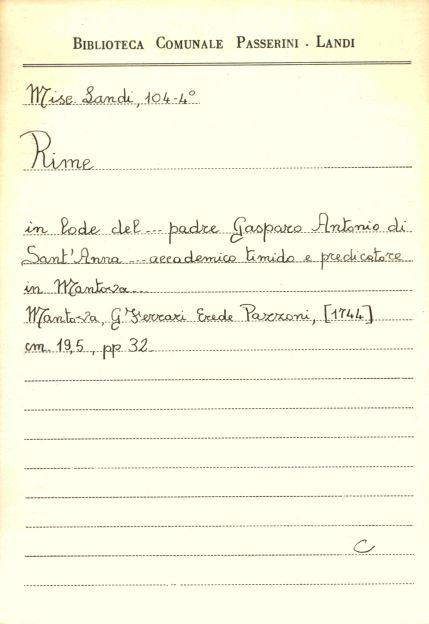 BIBLIOTECA COMUNALE PASSERINI - LANDI
Misc Landi, 104-4°
Rime
in lode del --- padre Gasparo Antonio di
Sant'Anna --- accademico timido e predicatore
in Mantova ---
Mantova, G Ferrari Erede Pazzoni, [1744]
cm. 19,5, pp 32
C